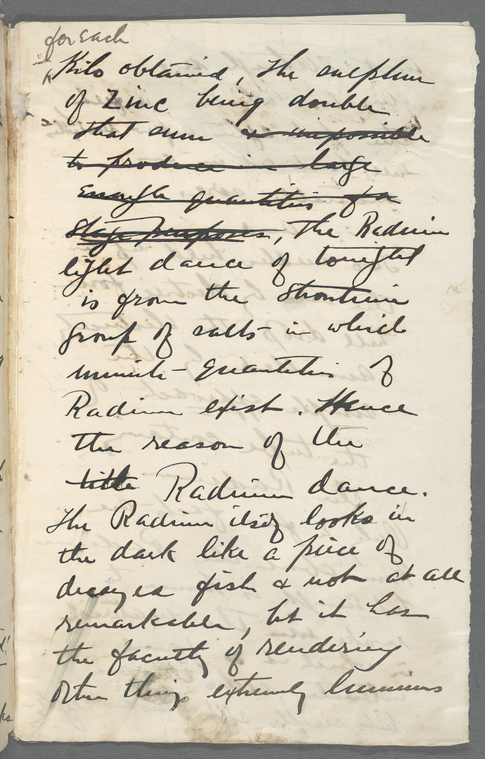 for each
Kilo obtained, the sulphur
of Zinc being double
that sum is impossible
to produce in large
enough quantities for
stage purposes, the Radium
light dance of tonight
is from the Strontium
group of salts in which
minute quantities of
Radium exist. Hence
the reason of the
title Radium dance.
The Radium itself looks in
the dark like a piece of
decayed fish & not at all
remarkable, but it has
the faculty of rendering
other things extremely luminous